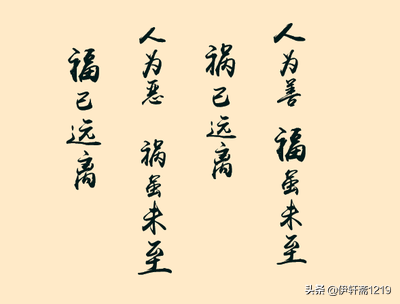 人为善 福虽未至
祸已远离
人为恶 祸虽未至
福已远离
头条 @伊轩斋1219